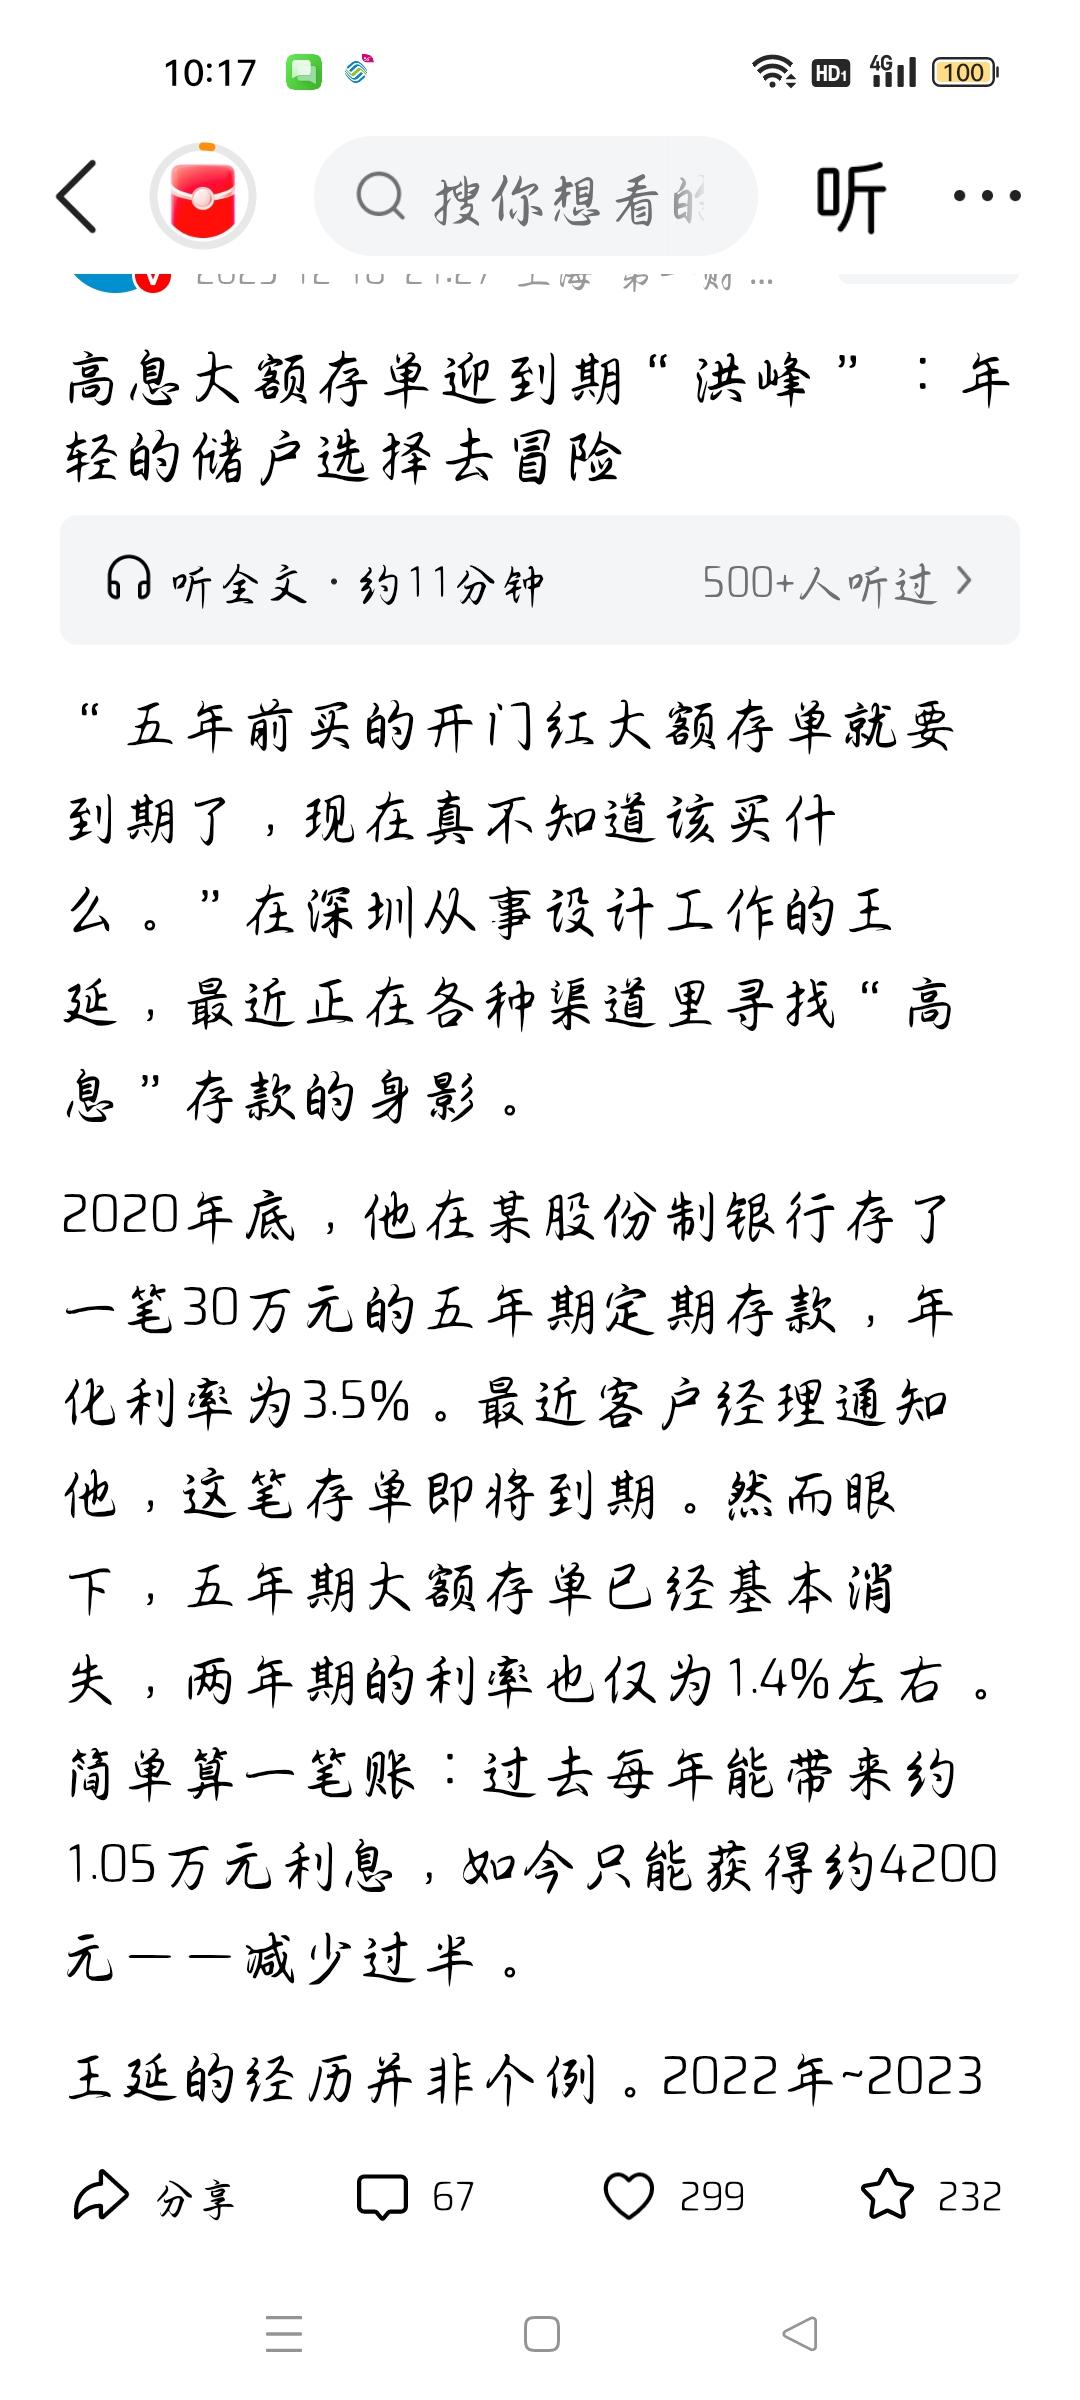 10:17
HD1
4G
100
搜你想看的
听
···
高息大额存单迎到期“洪峰”：年
轻的储户选择去冒险
听全文·约11分钟
500+人听过
“五年前买的开门红大额存单就要
到期了，现在真不知道该买什
么。”在深圳从事设计工作的王
延，最近正在各种渠道里寻找“高
息”存款的身影。
2020年底，他在某股份制银行存了
一笔30万元的五年期定期存款，年
化利率为3.5%。最近客户经理通知
他，这笔存单即将到期。然而眼
下，五年期大额存单已经基本消
失，两年期的利率也仅为1.4%左右。
简单算一笔账：过去每年能带来约
1.05万元利息，如今只能获得约4200
元——减少过半。
王延的经历并非个例。2022年~2023
分享
67
299
232